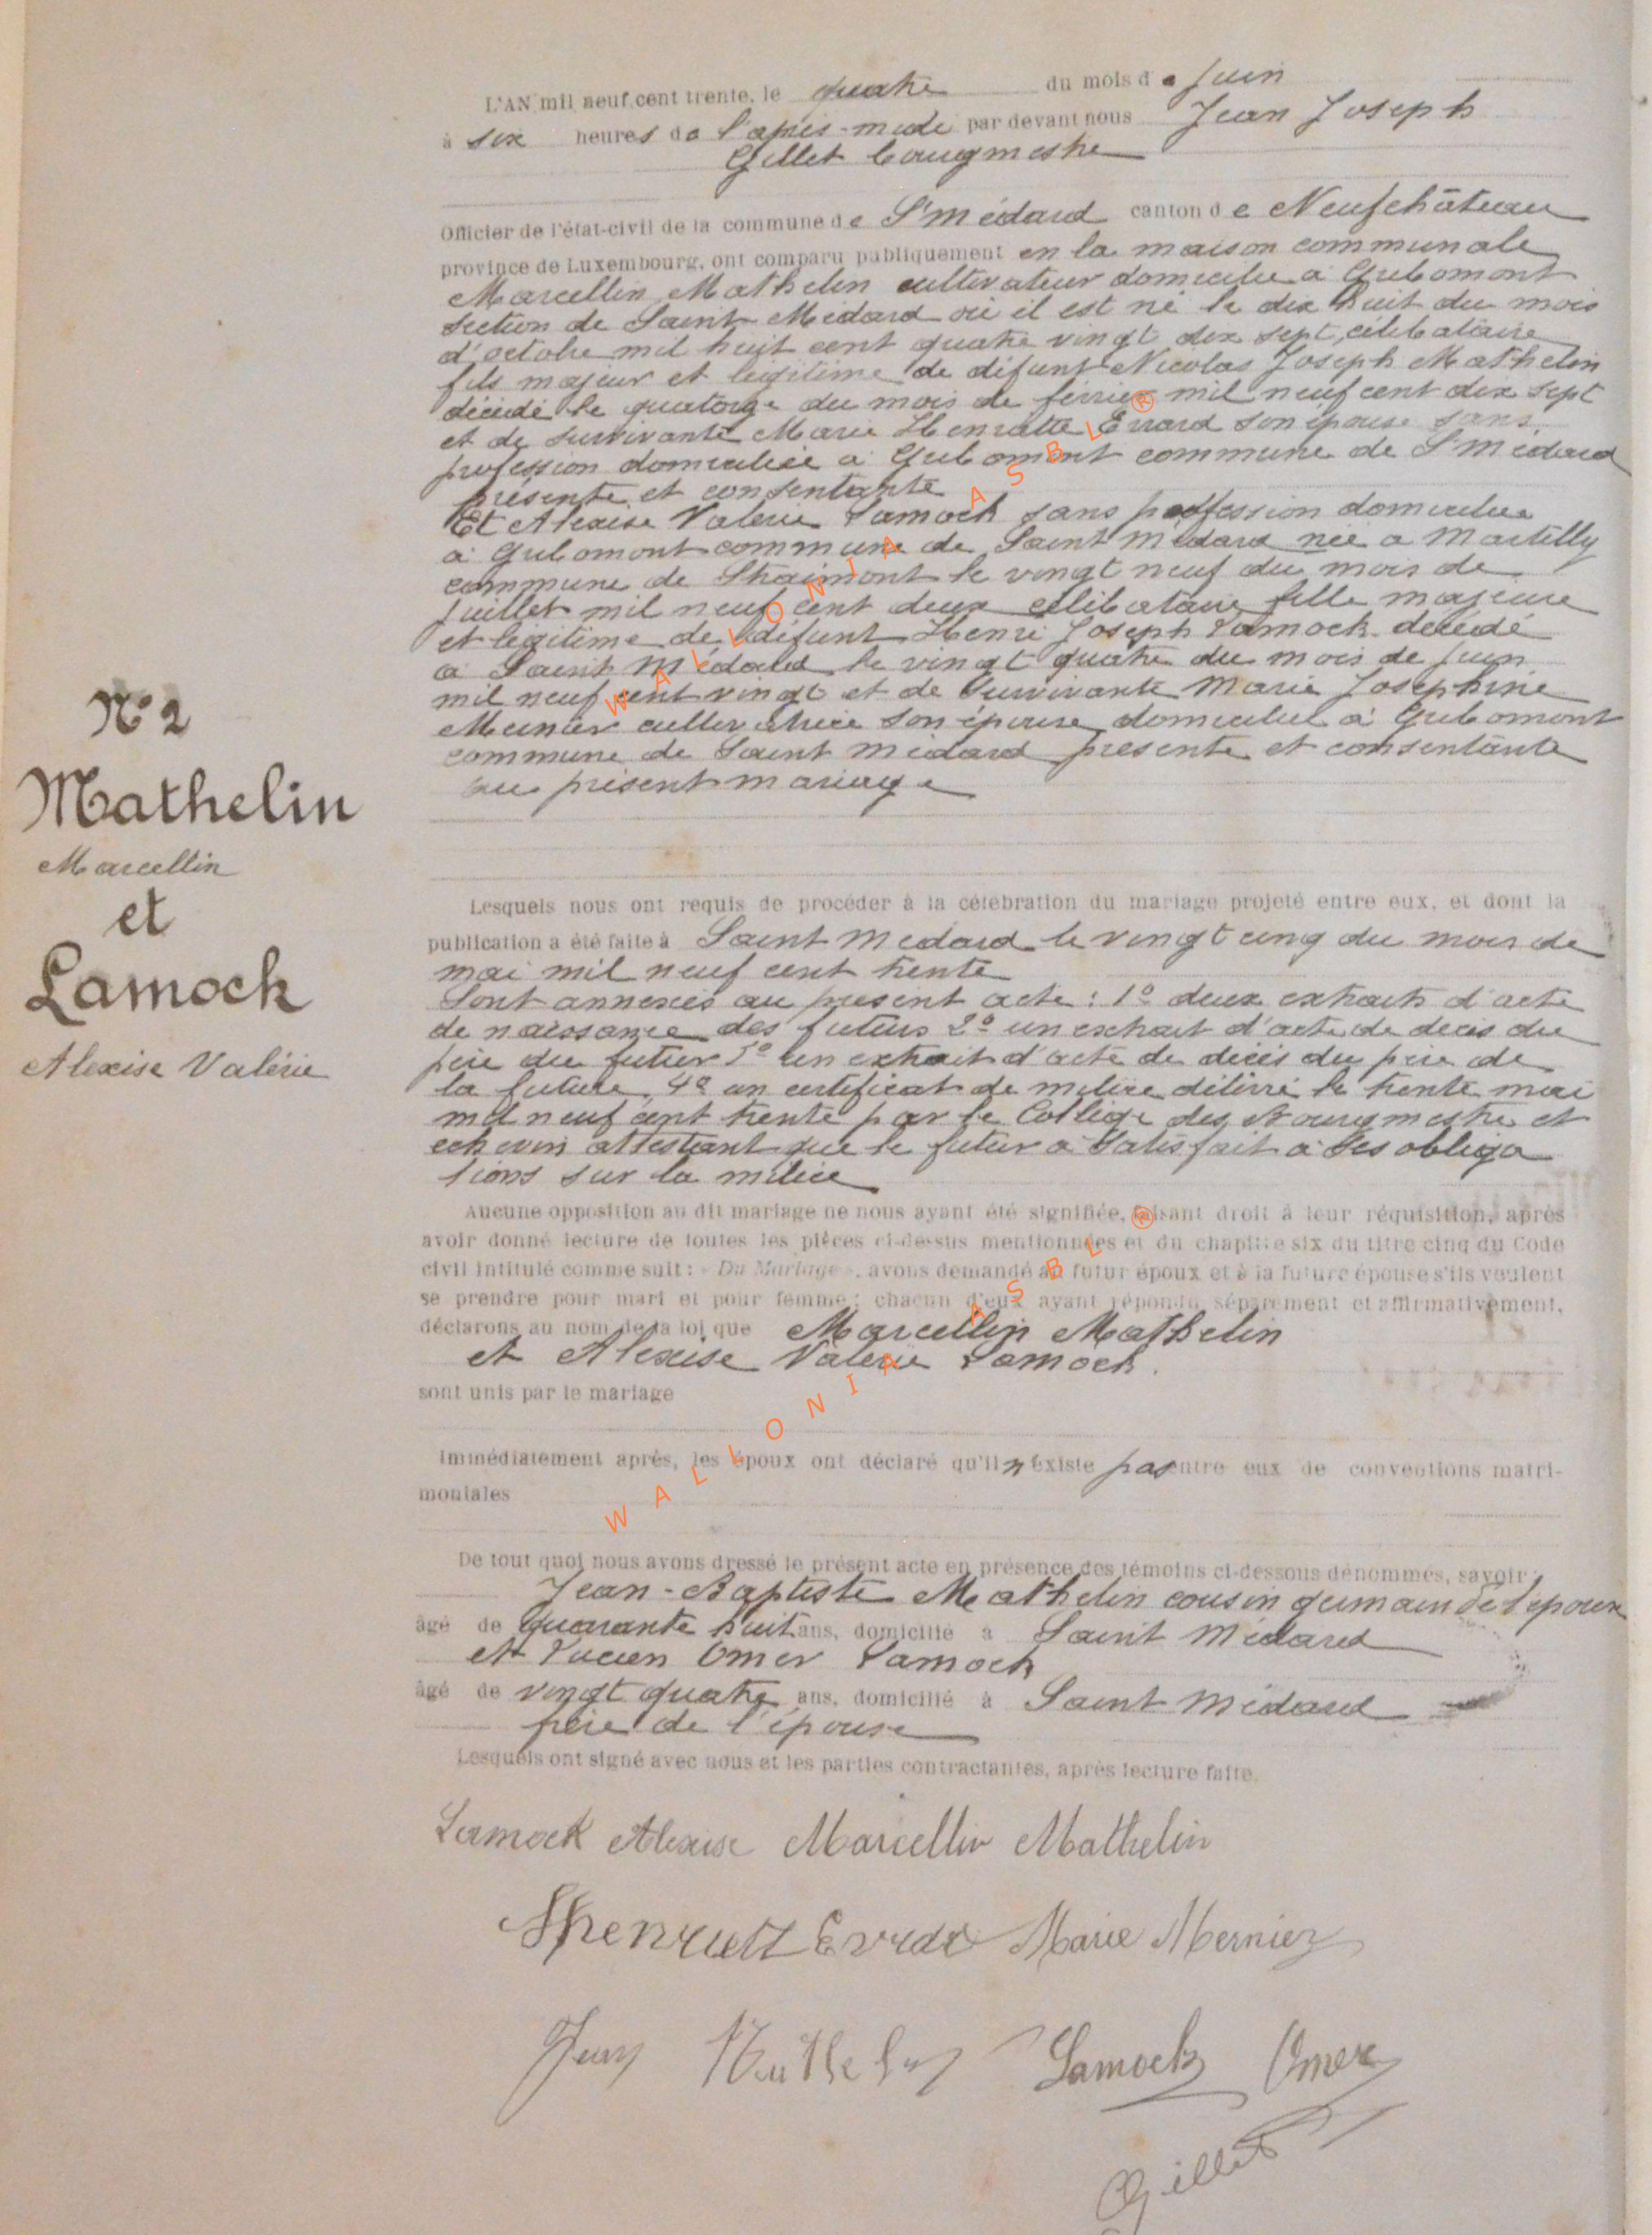 L'AN mil neuf cent trente, le quatre du mois de Juin
à six heures de l'après-midi par devant nous Jean Joseph
Gillet bourgmestre
Officier de l'état-civil de la commune de St Médard canton de Neufchâteau
province de Luxembourg, ont comparu publiquement en la maison communale
Marcellin Mathelin cultivateur domicilié à Gribomont
section de Saint Médard où il est né le dix huit du mois
d'octobre mil huit cent quatre vingt dix sept, célibataire
fils majeur et légitime de défunt Nicolas Joseph Mathelin
décédé le quatorze du mois de février mil neuf cent dix sept
et de survivante Marie Henriette Evrard son épouse sans
profession domiciliée à Gribomont commune de St Médard
présente et consentante
Et Alexise Valérie Lamock sans profession domiciliée
à Gribomont commune de Saint Médard née à Martilly
commune de Straimont le vingt neuf du mois de
Juillet mil neuf cent deux célibataire fille majeure
et légitime de défunt Henri Joseph Lamock décédé
à Saint Médard le vingt quatre du mois de Juin
mil neuf cent vingt et de survivante Marie Joséphine
cultivatrice son épouse domiciliée à Gribomont
commune de Saint Médard présente et consentante
au présent mariage
N° 2
Mathelin
Marcellin
et
Lamock
Alexise Valérie
Lesquels nous ont requis de procéder à la célébration du mariage projeté entre eux, et dont la
publication a été faite à Saint Médard le vingt cinq du mois de
mai mil neuf cent trente
Sont annexés au présent acte : 1° deux extraits d'acte
de naissance des futurs 2° un extrait d'acte de décès du
père du futur 3° un extrait d'acte de décès du père de
la future, 4° un certificat de milice délivré le trente mai
mil neuf cent trente par le Collège des Bourgmestre et
echevin attestant que le futur a satisfait à ses obliga
tions sur la milice
Aucune opposition au dit mariage ne nous ayant été signifiée, faisant droit à leur réquisition, après
avoir donné lecture de toutes les pièces ci-dessus mentionnées et du chapitre six du titre cinq du Code
civil intitulé comme suit : « Du Mariage », avons demandé au futur époux et à la future épouse s'ils veulent
se prendre pour mari et pour femme ; chacun d'eux ayant répondu séparément et affirmativement,
déclarons au nom de la loi que Marcellin Mathelin
et Alexise Valérie Lamock.
sont unis par le mariage
Immédiatement après, les époux ont déclaré qu'il n'existe pas entre eux de conventions matri-
moniales
De tout quoi nous avons dressé le présent acte en présence des témoins ci-dessous dénommés, savoir :
Jean-Baptiste Mathelin cousin germain de l'époux
âgé de quarante huit ans, domicilié à Saint Médard
et Lucien Omer Lamock
âgé de vingt quatre ans, domicilié à Saint Médard
frère de l'épouse
Lesquels ont signé avec nous et les parties contractantes, après lecture faite.
Lamock Alexise Marcellin Mathelin
Marie
Jean Mathelin Lamock Omer
Gillet
WALLONIA ASBL ®
WALLONIA ASBL ®